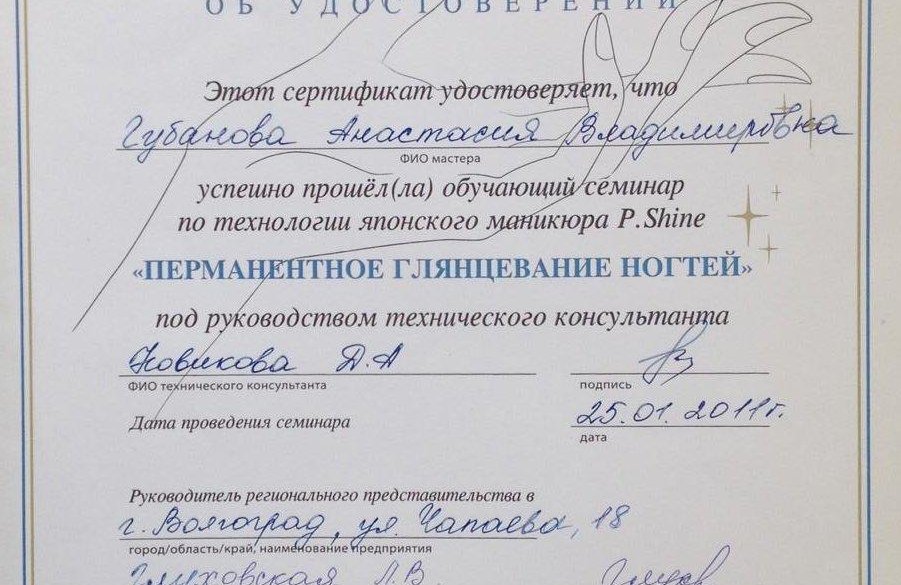 ОБ УДОСТОВЕРЕНИИ
Этот сертификат удостоверяет, что
Губанова Анастасия Владимировна
ФИО мастера
успешно прошёл(ла) обучающий семинар
по технологии японского маникюра P.Shine
«ПЕРМАНЕНТНОЕ ГЛЯНЦЕВАНИЕ НОГТЕЙ»
под руководством технического консультанта
Новикова Д.А
ФИО технического консультанта
подпись
Дата проведения семинара
25.01.2011г.
дата
Руководитель регионального представительства в
г. Волгоград, ул. Чапаева, 18
город/область/край, наименование предприятия
Глуховская Л.В.